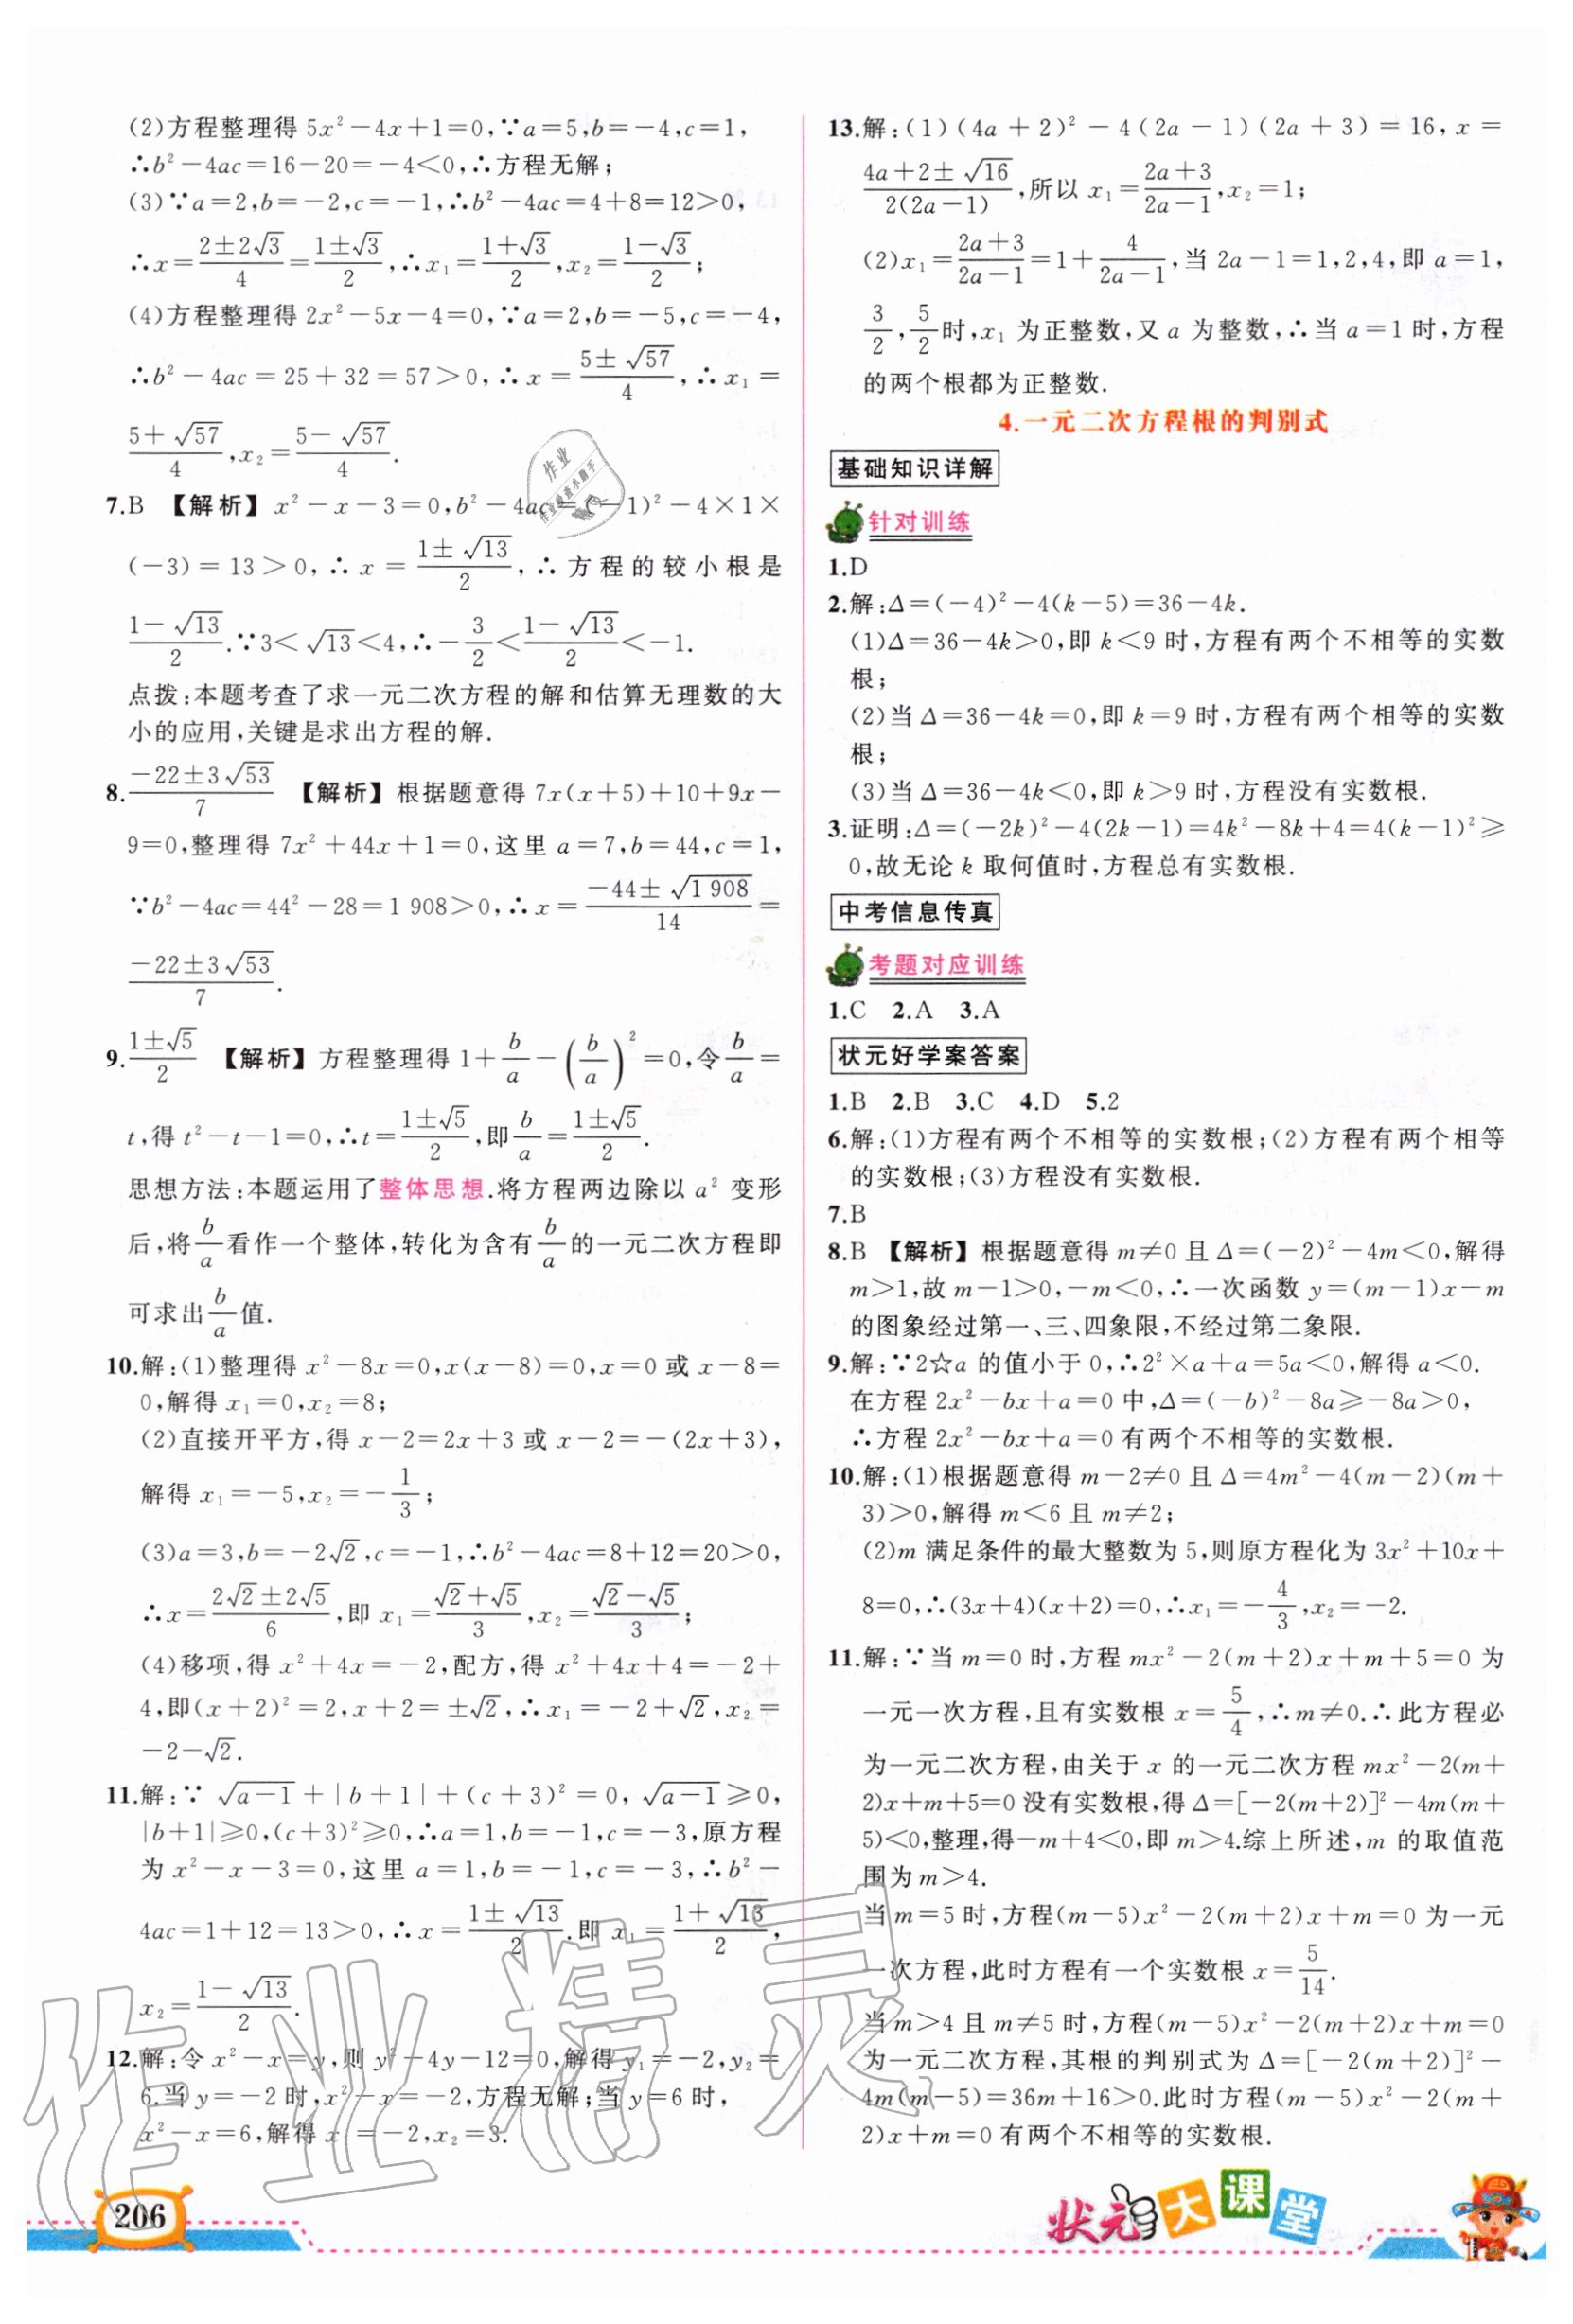 (2)方程整理得 5x²-4x+1=0,∵a=5,b=-4,c=1,
∴b²-4ac=16-20=-4<0,∴方程无解;
(3)∵a=2,b=-2,c=-1,∴b²-4ac=4+8=12>0,
∴x=(2±2√3)/4=(1±√3)/2,∴x₁=(1+√3)/2,x₂=(1-√3)/2;
(4)方程整理得 2x²-5x-4=0,∵a=2,b=-5,c=-4,
∴b²-4ac=25+32=57>0,∴x=(5±√57)/4,∴x₁=
(5+√57)/4,x₂=(5-√57)/4.
7.B 【解析】x²-x-3=0,b²-4ac=(-1)²-4×1×
(-3)=13>0,∴x=(1±√13)/2,∴方程的较小根是
(1-√13)/2.∵3<√13<4,∴-3/2<(1-√13)/2<-1.
点拨:本题考查了求一元二次方程的解和估算无理数的大
小的应用,关键是求出方程的解.
8.(-22±3√53)/7 【解析】根据题意得 7x(x+5)+10+9x-
9=0,整理得 7x²+44x+1=0,这里 a=7,b=44,c=1,
∵b²-4ac=44²-28=1 908>0,∴x=(-44±√1 908)/14=
(-22±3√53)/7.
9.(1±√5)/2 【解析】方程整理得 1+b/a-(b/a)²=0,令b/a=
t,得 t²-t-1=0,∴t=(1±√5)/2,即b/a=(1±√5)/2.
思想方法:本题运用了整体思想.将方程两边除以 a² 变形
后,将b/a看作一个整体,转化为含有b/a的一元二次方程即
可求出b/a值.
10.解:(1)整理得 x²-8x=0,x(x-8)=0,x=0 或 x-8=
0,解得 x₁=0,x₂=8;
(2)直接开平方,得 x-2=2x+3 或 x-2=-(2x+3),
解得 x₁=-5,x₂=-1/3;
(3)a=3,b=-2√2,c=-1,∴b²-4ac=8+12=20>0,
∴x=(2√2±2√5)/6,即 x₁=(√2+√5)/3,x₂=(√2-√5)/3;
(4)移项,得 x²+4x=-2,配方,得 x²+4x+4=-2+
4,即(x+2)²=2,x+2=±√2,∴x₁=-2+√2,x₂=
-2-√2.
11.解:∵√(a-1)+|b+1|+(c+3)²=0,√(a-1)≥0,
|b+1|≥0,(c+3)²≥0,∴a=1,b=-1,c=-3,原方程
为 x²-x-3=0,这里 a=1,b=-1,c=-3,∴b²-
4ac=1+12=13>0,∴x=(1±√13)/2.即 x₁=(1+√13)/2,
x₂=(1-√13)/2.
12.解:令 x²-x=y,则 y²-4y-12=0,解得 y₁=-2,y₂=
6.当 y=-2 时,x²-x=-2,方程无解;当 y=6 时,
x²-x=6,解得 x₁=-2,x₂=3.
206
13.解:(1)(4a+2)²-4(2a-1)(2a+3)=16,x=
(4a+2±√16)/(2(2a-1)),所以 x₁=(2a+3)/(2a-1),x₂=1;
(2)x₁=(2a+3)/(2a-1)=1+4/(2a-1),当 2a-1=1,2,4,即 a=1,
3/2,5/2时,x₁ 为正整数,又 a 为整数,∴当 a=1 时,方程
的两个根都为正整数.
4.一元二次方程根的判别式
基础知识详解
针对训练
1.D
2.解:Δ=(-4)²-4(k-5)=36-4k.
(1)Δ=36-4k>0,即 k<9 时,方程有两个不相等的实数
根;
(2)当 Δ=36-4k=0,即 k=9 时,方程有两个相等的实数
根;
(3)当 Δ=36-4k<0,即 k>9 时,方程没有实数根.
3.证明:Δ=(-2k)²-4(2k-1)=4k²-8k+4=4(k-1)²≥
0,故无论 k 取何值时,方程总有实数根.
中考信息传真
考题对应训练
1.C 2.A 3.A
状元好学案答案
1.B 2.B 3.C 4.D 5.2
6.解:(1)方程有两个不相等的实数根;(2)方程有两个相等
的实数根;(3)方程没有实数根.
7.B
8.B 【解析】根据题意得 m≠0 且 Δ=(-2)²-4m<0,解得
m>1,故 m-1>0,-m<0,∴一次函数 y=(m-1)x-m
的图象经过第一、三、四象限,不经过第二象限.
9.解:∵2☆a 的值小于 0,∴2²×a+a=5a<0,解得 a<0.
在方程 2x²-bx+a=0 中,Δ=(-b)²-8a≥-8a>0,
∴方程 2x²-bx+a=0 有两个不相等的实数根.
10.解:(1)根据题意得 m-2≠0 且 Δ=4m²-4(m-2)(m+
3)>0,解得 m<6 且 m≠2;
(2)m 满足条件的最大整数为 5,则原方程化为 3x²+10x+
8=0,∴(3x+4)(x+2)=0,∴x₁=-4/3,x₂=-2.
11.解:∵当 m=0 时,方程 mx²-2(m+2)x+m+5=0 为
一元一次方程,且有实数根 x=5/4,∴m≠0.∴此方程必
为一元二次方程,由关于 x 的一元二次方程 mx²-2(m+
2)x+m+5=0 没有实数根,得 Δ=[-2(m+2)]²-4m(m+
5)<0,整理,得-m+4<0,即 m>4.综上所述,m 的取值范
围为 m>4.
当 m=5 时,方程(m-5)x²-2(m+2)x+m=0 为一元
一次方程,此时方程有一个实数根 x=5/14.
当 m>4 且 m≠5 时,方程(m-5)x²-2(m+2)x+m=0
为一元二次方程,其根的判别式为 Δ=[-2(m+2)]²-
4m(m-5)=36m+16>0.此时方程(m-5)x²-2(m+
2)x+m=0 有两个不相等的实数根.
状元大课堂
作业精灵